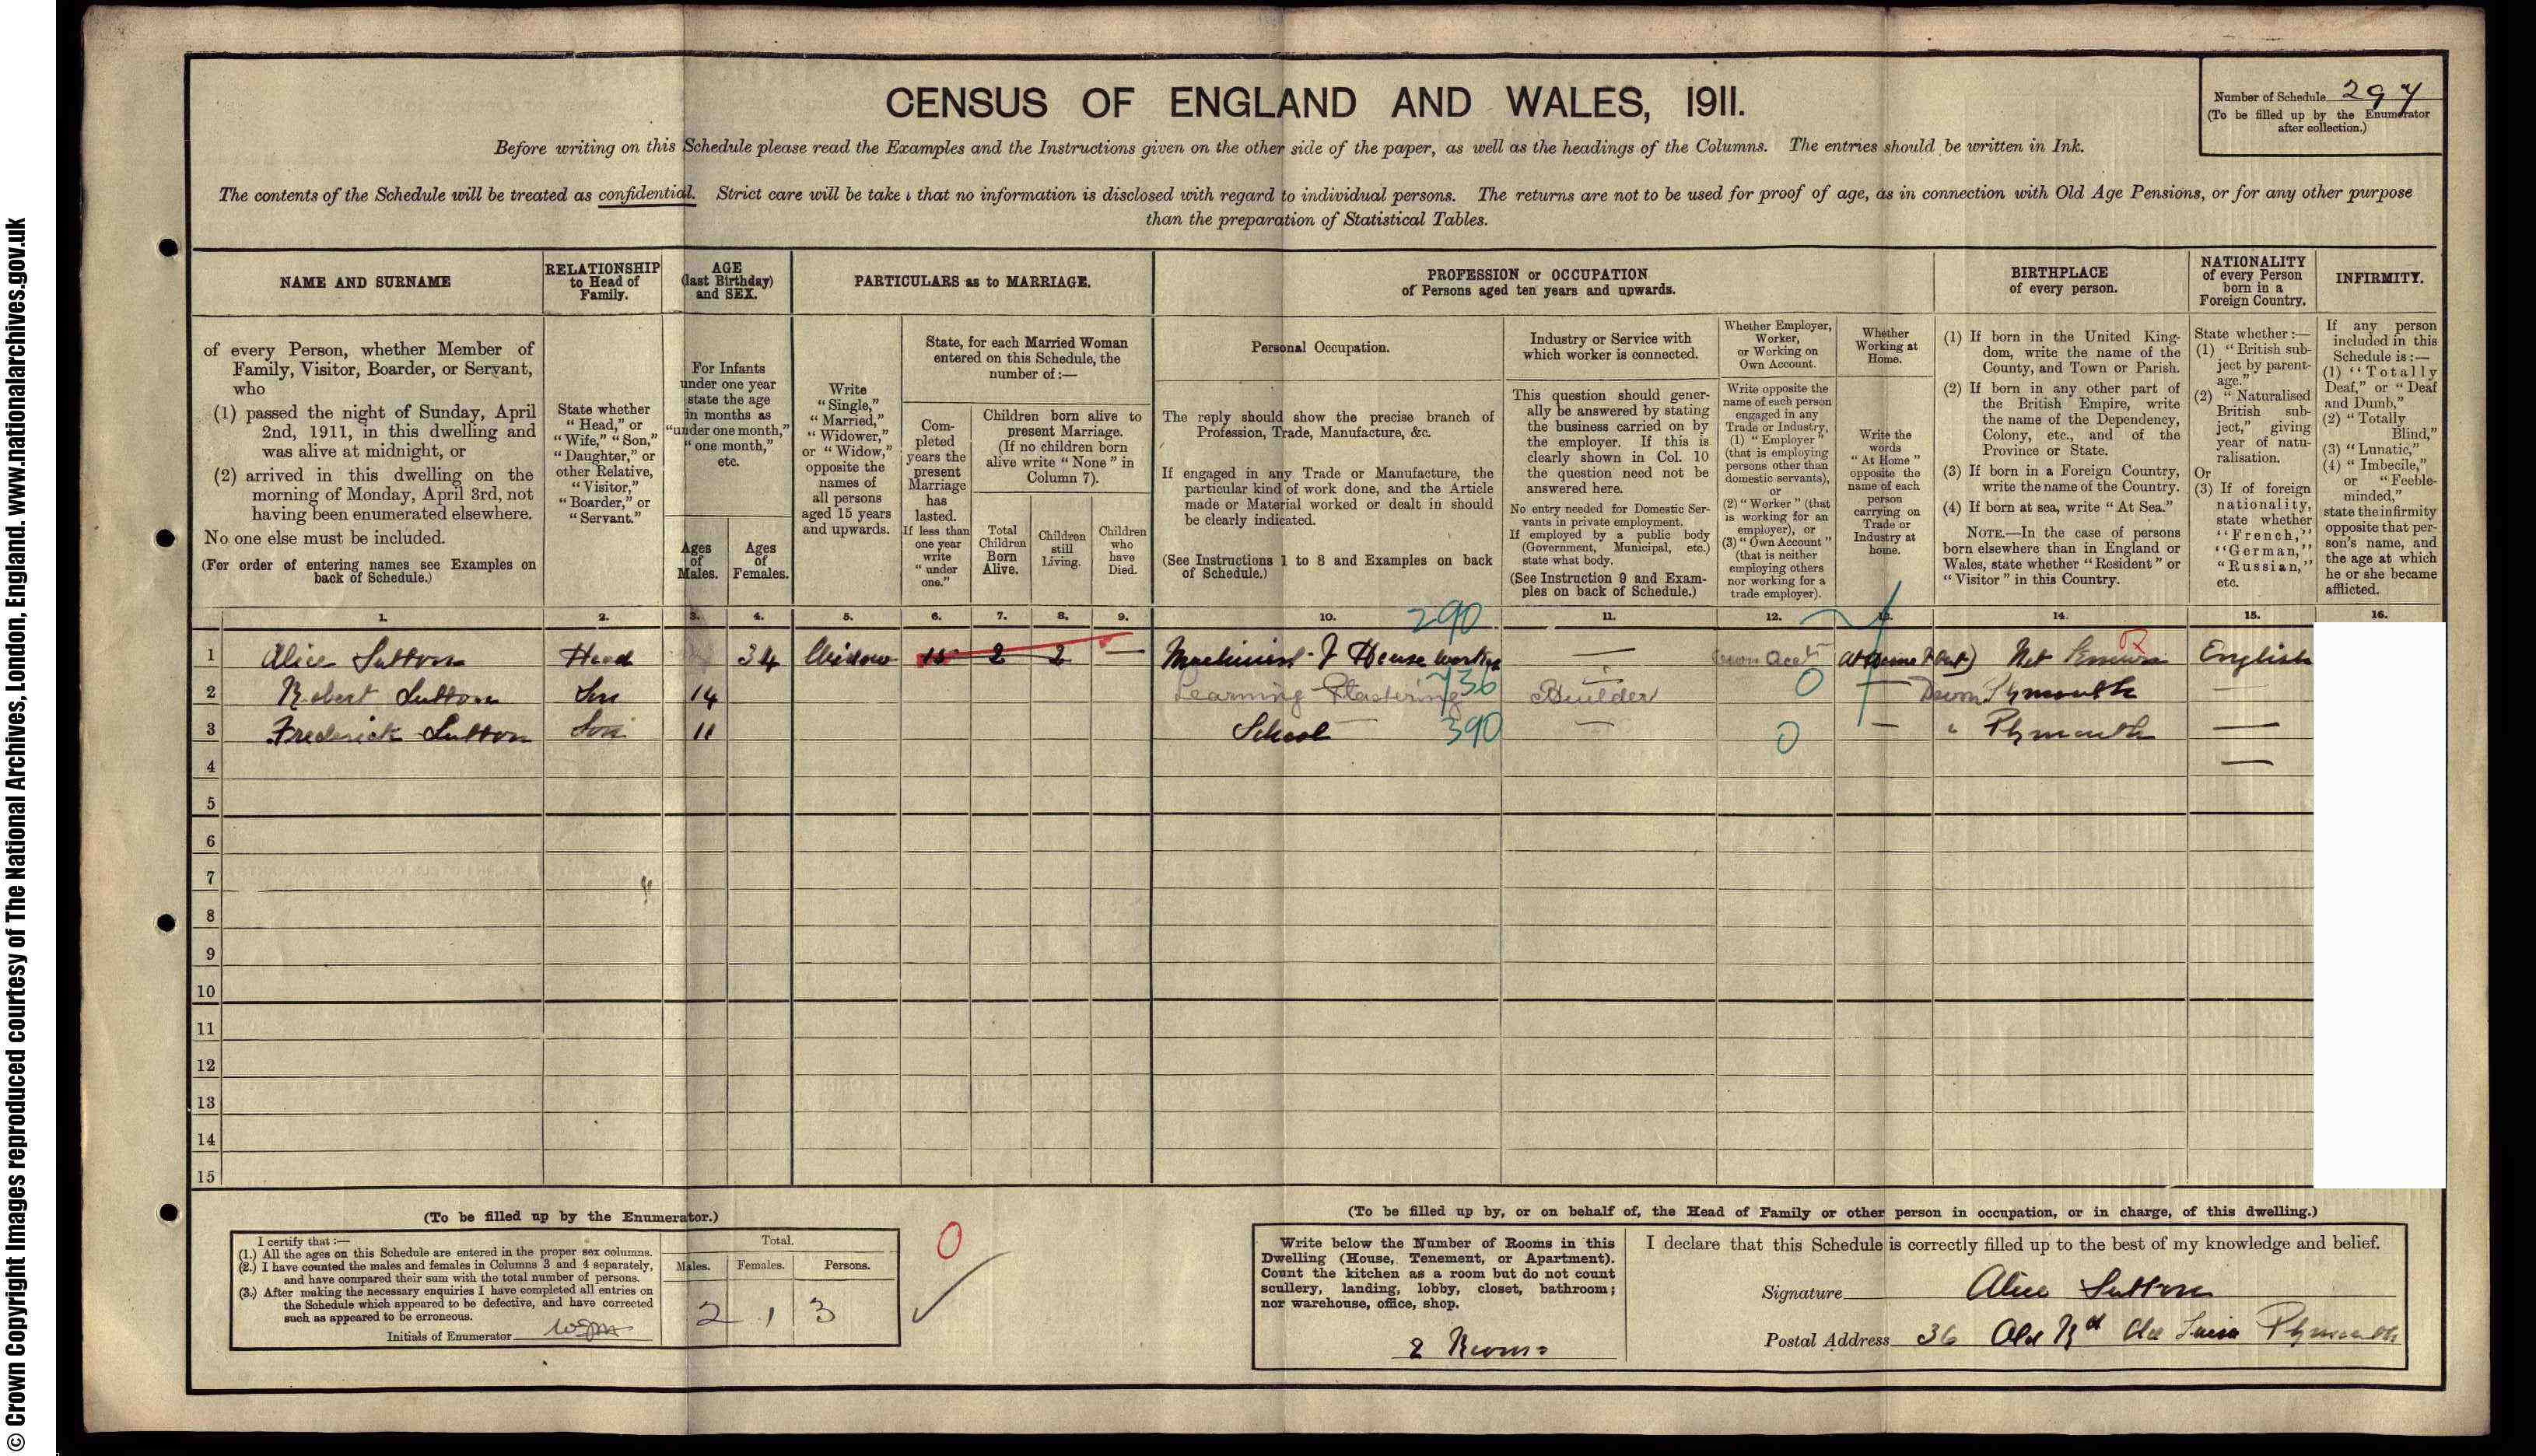 © Crown Copyright Images reproduced courtesy of The National Archives, London, England. www.nationalarchives.gov.uk
CENSUS OF ENGLAND AND WALES, 1911.
Number of Schedule 297
(To be filled up by the Enumerator
after collection.)
Before writing on this Schedule please read the Examples and the Instructions given on the other side of the paper, as well as the headings of the Columns. The entries should be written in Ink.
The contents of the Schedule will be treated as confidential. Strict care will be taken that no information is disclosed with regard to individual persons. The returns are not to be used for proof of age, as in connection with Old Age Pensions, or for any other purpose
than the preparation of Statistical Tables.
NAME AND SURNAME
of every Person, whether Member of
Family, Visitor, Boarder, or Servant,
who
(1) passed the night of Sunday, April
2nd, 1911, in this dwelling and
was alive at midnight, or
(2) arrived in this dwelling on the
morning of Monday, April 3rd, not
having been enumerated elsewhere.
No one else must be included.
(For order of entering names see Examples on
back of Schedule.)
RELATIONSHIP
to Head of
Family.
State whether
"Head," or
"Wife," "Son,"
"Daughter," or
other Relative,
"Visitor,"
"Boarder," or
"Servant."
AGE
(last Birthday)
and SEX.
For Infants
under one year
state the age
in months as
"under one month,"
"one month,"
etc.
Ages
of
Males.
Ages
of
Females.
PARTICULARS as to MARRIAGE.
Write
"Single,"
"Married,"
"Widower,"
or "Widow,"
opposite the
names of
all persons
aged 15 years
and upwards.
State, for each Married Woman
entered on this Schedule, the
number of:—
Com-
pleted
years the
present
Marriage
has
lasted.
If less than
one year
write
"under
one."
Children born alive to
present Marriage.
(If no children born
alive write "None" in
Column 7).
Total
Children
Born
Alive.
Children
still
Living.
Children
who
have
Died.
PROFESSION or OCCUPATION
of Persons aged ten years and upwards.
Personal Occupation.
The reply should show the precise branch of
Profession, Trade, Manufacture, &c.
If engaged in any Trade or Manufacture, the
particular kind of work done, and the Article
made or Material worked or dealt in should
be clearly indicated.
(See Instructions 1 to 8 and Examples on back
of Schedule.)
Industry or Service with
which worker is connected.
This question should gener-
ally be answered by stating
the business carried on by
the employer. If this is
clearly shown in Col. 10
the question need not be
answered here.
No entry needed for Domestic Ser-
vants in private employment.
If employed by a public body
(Government, Municipal, etc.)
state what body.
(See Instruction 9 and Exam-
ples on back of Schedule.)
Whether Employer,
Worker,
or Working on
Own Account.
Write opposite the
name of each person
engaged in any
Trade or Industry,
(1) "Employer"
(that is employing
persons other than
domestic servants),
or
(2) "Worker" (that
is working for an
employer), or
(3) "Own Account"
(that is neither
employing others
nor working for a
trade employer).
Whether
Working at
Home.
Write the
words
"At Home"
opposite the
name of each
person
carrying on
Trade or
Industry at
home.
BIRTHPLACE
of every person.
(1) If born in the United King-
dom, write the name of the
County, and Town or Parish.
(2) If born in any other part of
the British Empire, write
the name of the Dependency,
Colony, etc., and of the
Province or State.
(3) If born in a Foreign Country,
write the name of the Country.
(4) If born at sea, write "At Sea."
NOTE.—In the case of persons
born elsewhere than in England or
Wales, state whether "Resident" or
"Visitor" in this Country.
NATIONALITY
of every Person
born in a
Foreign Country.
State whether:—
(1) "British sub-
ject by parent-
age."
(2) "Naturalised
British sub-
ject," giving
year of natu-
ralisation.
Or
(3) If of foreign
nationality,
state whether
"French,"
"German,"
"Russian,"
etc.
INFIRMITY.
If any person
included in this
Schedule is:—
(1) "Totally
Deaf," or "Deaf
and Dumb,"
(2) "Totally
Blind,"
(3) "Lunatic,"
(4) "Imbecile,"
or "Feeble-
minded,"
state the infirmity
opposite that per-
son's name, and
the age at which
he or she became
afflicted.
1. 2. 3. 4. 5. 6. 7. 8. 9. 10. 11. 12. 13. 14. 15. 16.
290
1 Alice Sutton Head 34 Widow 15 2 2 — Machinist & House work — Own Acct At Home Not Known English
2 Robert Sutton Son 14 Learning Plastering 736 Builder 0 — Devon Plymouth —
3 Frederick Sutton Son 11 School 390 — 0 — " Plymouth —
4 —
5
6
7
8
9
10
11
12
13
14
15
(To be filled up by the Enumerator.)
I certify that:—
(1.) All the ages on this Schedule are entered in the proper sex columns.
(2.) I have counted the males and females in Columns 3 and 4 separately,
and have compared their sum with the total number of persons.
(3.) After making the necessary enquiries I have completed all entries on
the Schedule which appeared to be defective, and have corrected
such as appeared to be erroneous.
Initials of Enumerator
Total.
Males. Females. Persons.
2 1 3
0
(To be filled up by, or on behalf of, the Head of Family or other person in occupation, or in charge, of this dwelling.)
Write below the Number of Rooms in this
Dwelling (House, Tenement, or Apartment).
Count the kitchen as a room but do not count
scullery, landing, lobby, closet, bathroom;
nor warehouse, office, shop.
2 Rooms
I declare that this Schedule is correctly filled up to the best of my knowledge and belief.
Signature Alice Sutton
Postal Address 36 Old Rd Plymouth